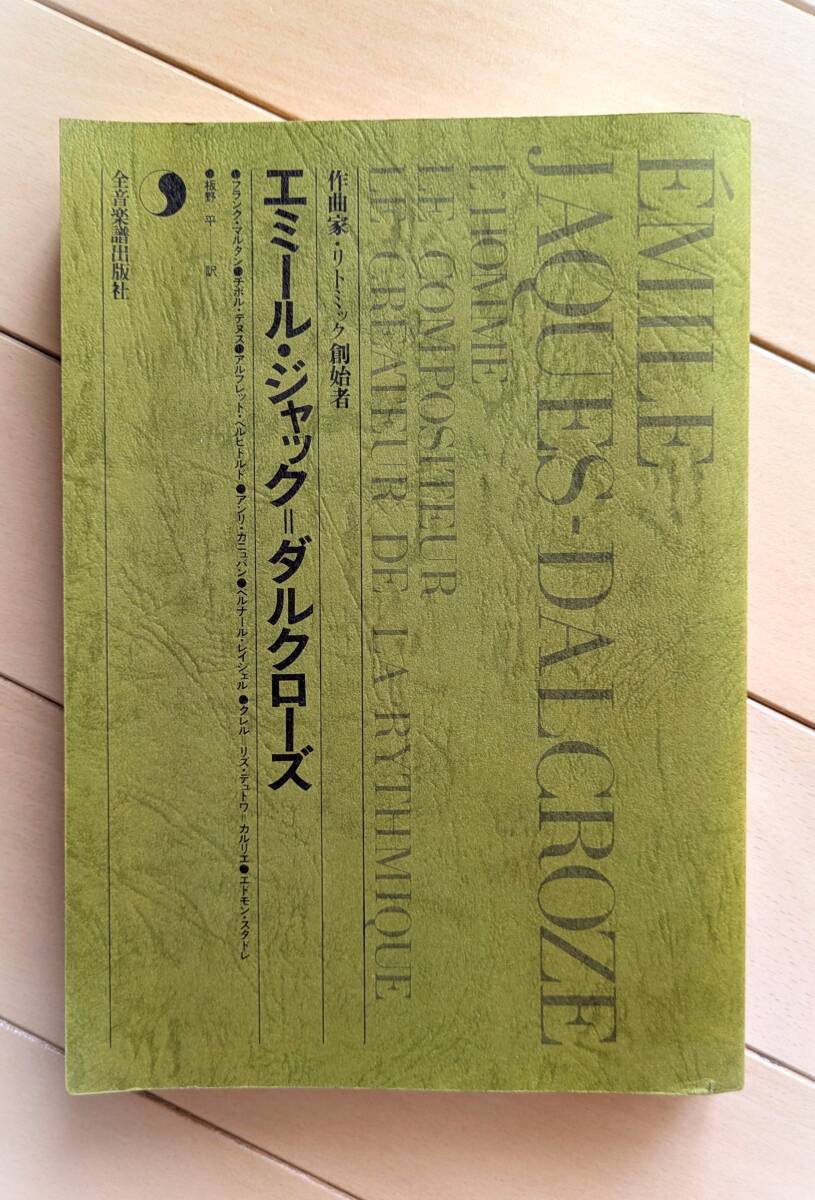 ÉMILE
JAQUES-DALCROZE
L'HOMME
LE COMPOSITEUR
LE CRÉATEUR DE LA RYTHMIQUE
作曲家・リトミック創始者
エミール・ジャック=ダルクローズ
●フランク・マルタン●チボル・デヌス●アルフレット・ベルヒトルド●アンリ・ガニュバン●ベルナール・レイシェル●クレル=リズ・デュトワ=カルリエ●エドモン・スタドレ
●板野 平 訳
全音楽譜出版社